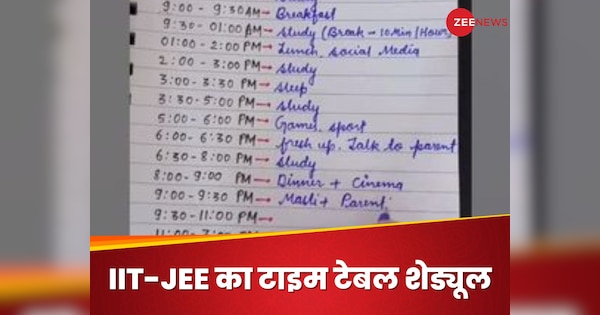 Study
ZEENEWS
9:00 - 9:30AM→ Breakfast
9:30 - 01:00AM→ Study (Break - 10 Min/Hour)
01:00 - 2:00 PM→ Lunch, Social Media
2:00 - 3:00 PM→ Study
3:00 - 3:30 PM→ Sleep
3:30 - 5:00 PM→ Study
5:00 - 6:00 PM→ Game, sport
6:00 - 6:30 PM→ fresh up, Talk to parent
6:30 - 8:00 PM→ Study
8:00 - 9:00 PM→ Dinner + Cinema
9:00 - 9:30 PM→ Masti + Parent
9:30 - 11:00 PM→
IIT-JEE का टाइम टेबल शेड्यूल